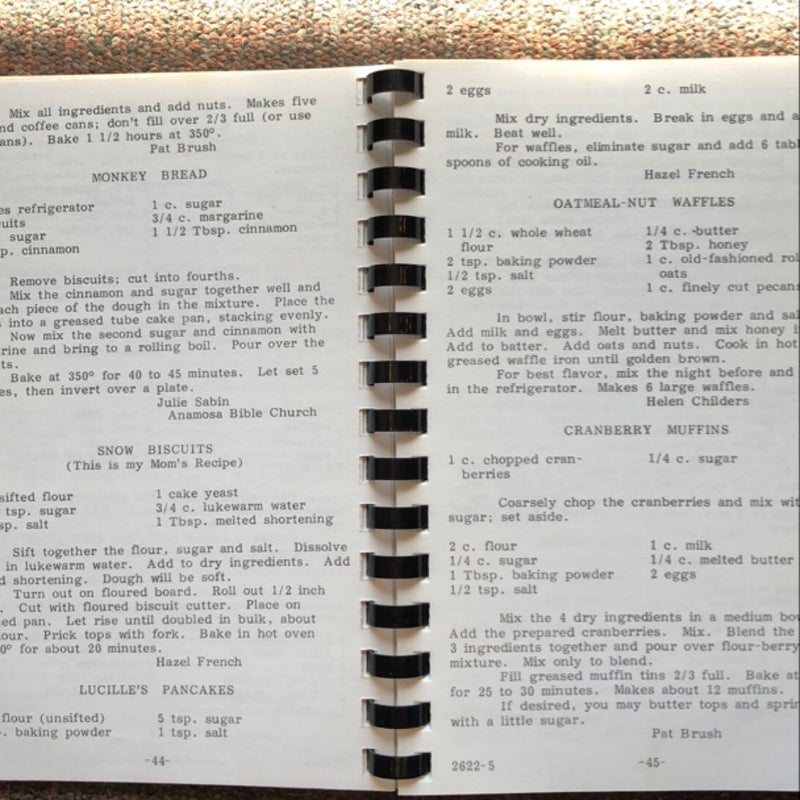 Mix all ingredients and add nuts. Makes five
nd coffee cans; don't fill over 2/3 full (or use
ans). Bake 1 1/2 hours at 350°.
Pat Brush
MONKEY BREAD
es refrigerator 1 c. sugar
uits 3/4 c. margarine
sugar 1 1/2 Tbsp. cinnamon
p. cinnamon
Remove biscuits; cut into fourths.
Mix the cinnamon and sugar together well and
ach piece of the dough in the mixture. Place the
s into a greased tube cake pan, stacking evenly.
Now mix the second sugar and cinnamon with
rine and bring to a rolling boil. Pour over the
ts.
Bake at 350° for 40 to 45 minutes. Let set 5
es, then invert over a plate.
Julie Sabin
Anamosa Bible Church
SNOW BISCUITS
(This is my Mom's Recipe)
sifted flour 1 cake yeast
tsp. sugar 3/4 c. lukewarm water
sp. salt 1 Tbsp. melted shortening
Sift together the flour, sugar and salt. Dissolve
in lukewarm water. Add to dry ingredients. Add
d shortening. Dough will be soft.
Turn out on floured board. Roll out 1/2 inch
. Cut with floured biscuit cutter. Place on
ed pan. Let rise until doubled in bulk, about
our. Prick tops with fork. Bake in hot oven
0° for about 20 minutes.
Hazel French
LUCILLE'S PANCAKES
flour (unsifted) 5 tsp. sugar
. baking powder 1 tsp. salt
-44-
2 eggs 2 c. milk
Mix dry ingredients. Break in eggs and a
milk. Beat well.
For waffles, eliminate sugar and add 6 tabl
spoons of cooking oil.
Hazel French
OATMEAL-NUT WAFFLES
1 1/2 c. whole wheat 1/4 c. butter
flour 2 Tbsp. honey
2 tsp. baking powder 1 c. old-fashioned rol
1/2 tsp. salt oats
2 eggs 1 c. finely cut pecans
In bowl, stir flour, baking powder and sal
Add milk and eggs. Melt butter and mix honey i
Add to batter. Add oats and nuts. Cook in hot
greased waffle iron until golden brown.
For best flavor, mix the night before and
in the refrigerator. Makes 6 large waffles.
Helen Childers
CRANBERRY MUFFINS
1 c. chopped cran- 1/4 c. sugar
berries
Coarsely chop the cranberries and mix wit
sugar; set aside.
2 c. flour 1 c. milk
1/4 c. sugar 1/4 c. melted butter
1 Tbsp. baking powder 2 eggs
1/2 tsp. salt
Mix the 4 dry ingredients in a medium bow
Add the prepared cranberries. Mix. Blend the
3 ingredients together and pour over flour-berry
mixture. Mix only to blend.
Fill greased muffin tins 2/3 full. Bake at
for 25 to 30 minutes. Makes about 12 muffins.
If desired, you may butter tops and sprin
with a little sugar.
Pat Brush
2622-5 -45-